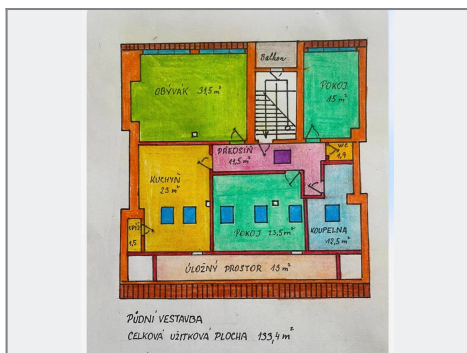 Balkon
OBÝVÁK 31,5 m²
POKOJ
15 m²
PŘEDSÍŇ
11,5 m²
WC
1,9
KUCHYŇ
23 m²
SPÍŽ
1,5
POKOJ 23,5 m²
KOUPELNA
12,5 m²
ÚLOŽNÝ PROSTOR 13 m²
PŮDNÍ VESTAVBA
CELKOVÁ UŽITKOVÁ PLOCHA 133,4 m²